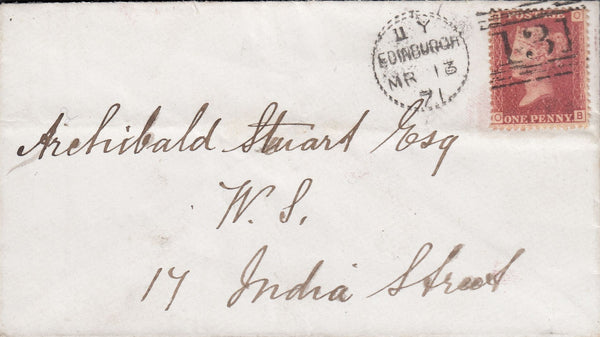 11 Y
EDINBURGH
MR 13
71
POSTAGE
131
ONE PENNY
O B
Archibald Stuart Esq
W. S.
17 India Street